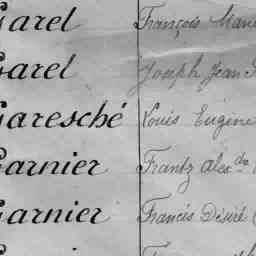 Garel François Marie
Garel Joseph Jean
Garesché Louis Eugène
Garnier Frantz Alexdre
Garnier Francis Désiré